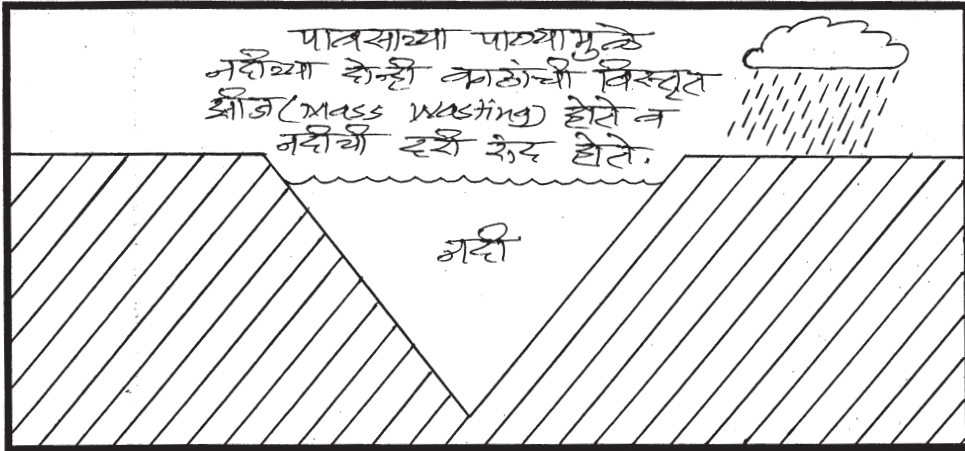 पावसाच्या पाण्यामुळे
नदीच्या दोन्ही काठांची विस्तृत
झीज (Mass Wasting) होते व
नदीची दरी रुंद होते.
नदी